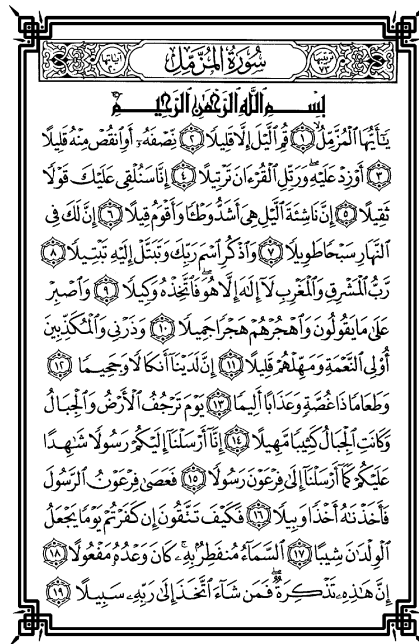 ترتيبها ٧٣ سُورَةُ المُزَّمِّلِ آياتها ٢٠
بِسْمِ ٱللَّهِ ٱلرَّحْمَٰنِ ٱلرَّحِيمِ
يَٰٓأَيُّهَا ٱلْمُزَّمِّلُ ۝١ قُمِ ٱلَّيْلَ إِلَّا قَلِيلًا ۝٢ نِّصْفَهُۥٓ أَوِ ٱنقُصْ مِنْهُ قَلِيلًا
۝٣ أَوْ زِدْ عَلَيْهِ وَرَتِّلِ ٱلْقُرْءَانَ تَرْتِيلًا ۝٤ إِنَّا سَنُلْقِى عَلَيْكَ قَوْلًا
ثَقِيلًا ۝٥ إِنَّ نَاشِئَةَ ٱلَّيْلِ هِىَ أَشَدُّ وَطْـًٔا وَأَقْوَمُ قِيلًا ۝٦ إِنَّ لَكَ فِى
ٱلنَّهَارِ سَبْحًا طَوِيلًا ۝٧ وَٱذْكُرِ ٱسْمَ رَبِّكَ وَتَبَتَّلْ إِلَيْهِ تَبْتِيلًا ۝٨
رَّبُّ ٱلْمَشْرِقِ وَٱلْمَغْرِبِ لَآ إِلَٰهَ إِلَّا هُوَ فَٱتَّخِذْهُ وَكِيلًا ۝٩ وَٱصْبِرْ
عَلَىٰ مَا يَقُولُونَ وَٱهْجُرْهُمْ هَجْرًا جَمِيلًا ۝١٠ وَذَرْنِى وَٱلْمُكَذِّبِينَ
أُو۟لِى ٱلنَّعْمَةِ وَمَهِّلْهُمْ قَلِيلًا ۝١١ إِنَّ لَدَيْنَآ أَنكَالًا وَجَحِيمًا ۝١٢
وَطَعَامًا ذَا غُصَّةٍ وَعَذَابًا أَلِيمًا ۝١٣ يَوْمَ تَرْجُفُ ٱلْأَرْضُ وَٱلْجِبَالُ
وَكَانَتِ ٱلْجِبَالُ كَثِيبًا مَّهِيلًا ۝١٤ إِنَّآ أَرْسَلْنَآ إِلَيْكُمْ رَسُولًا شَٰهِدًا
عَلَيْكُمْ كَمَآ أَرْسَلْنَآ إِلَىٰ فِرْعَوْنَ رَسُولًا ۝١٥ فَعَصَىٰ فِرْعَوْنُ ٱلرَّسُولَ
فَأَخَذْنَٰهُ أَخْذًا وَبِيلًا ۝١٦ فَكَيْفَ تَتَّقُونَ إِن كَفَرْتُمْ يَوْمًا يَجْعَلُ
ٱلْوِلْدَٰنَ شِيبًا ۝١٧ ٱلسَّمَآءُ مُنفَطِرٌۢ بِهِۦ كَانَ وَعْدُهُۥ مَفْعُولًا ۝١٨
إِنَّ هَٰذِهِۦ تَذْكِرَةٌ فَمَن شَآءَ ٱتَّخَذَ إِلَىٰ رَبِّهِۦ سَبِيلًا ۝١٩